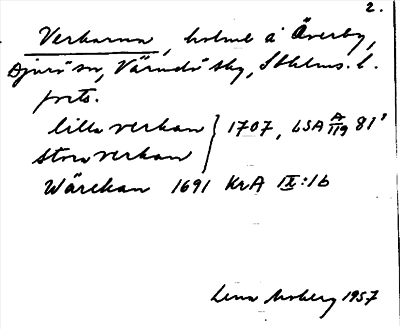 2.
Verkarna, holme å Överby,
Djurö sn, Värmdö skg, Sthlms. l.
forts.
lilla verkan } 1707, LSA A/119 81¹
stora verkan
Wärckan 1691 KrA IX:1b
Lena Moberg 1957